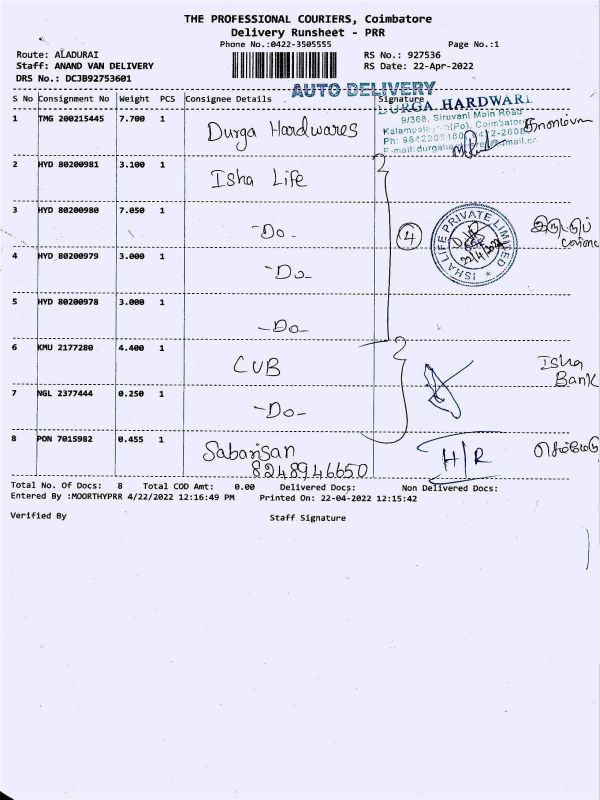 THE PROFESSIONAL COURIERS, Coimbatore
Delivery Runsheet - PRR
Phone No.:0422-3505555 Page No.:1
Route: ALADURAI RS No.: 927536
Staff: ANAND VAN DELIVERY RS Date: 22-Apr-2022
DRS No.: DCJB92753601
AUTO DELIVERY
S No Consignment No Weight PCS Consignee Details Signature
DURGA HARDWARE
9/368, Siruvani Main Road
1 TMG 200215445 7.700 1 Durga Hardwares
2 HYD 80200981 3.100 1 Isha Life
3 HYD 80200980 7.050 1 -Do-
4
ISHA LIFE PRIVATE LIMITED
22/4/2022
இருட்டுப்
4 HYD 80200979 3.000 1 -Do-
5 HYD 80200978 3.000 1 -Do-
6 KMU 2177280 4.400 1 CUB Isha
Bank
7 NGL 2377444 0.250 1 -Do-
8 PON 7015982 0.455 1 Sabarisan H/R செம்மேடு
8248946650
Total No. Of Docs: 8 Total COD Amt: 0.00 Delivered Docs: Non Delivered Docs:
Entered By :MOORTHYPRR 4/22/2022 12:16:49 PM Printed On: 22-04-2022 12:15:42
Verified By Staff Signature